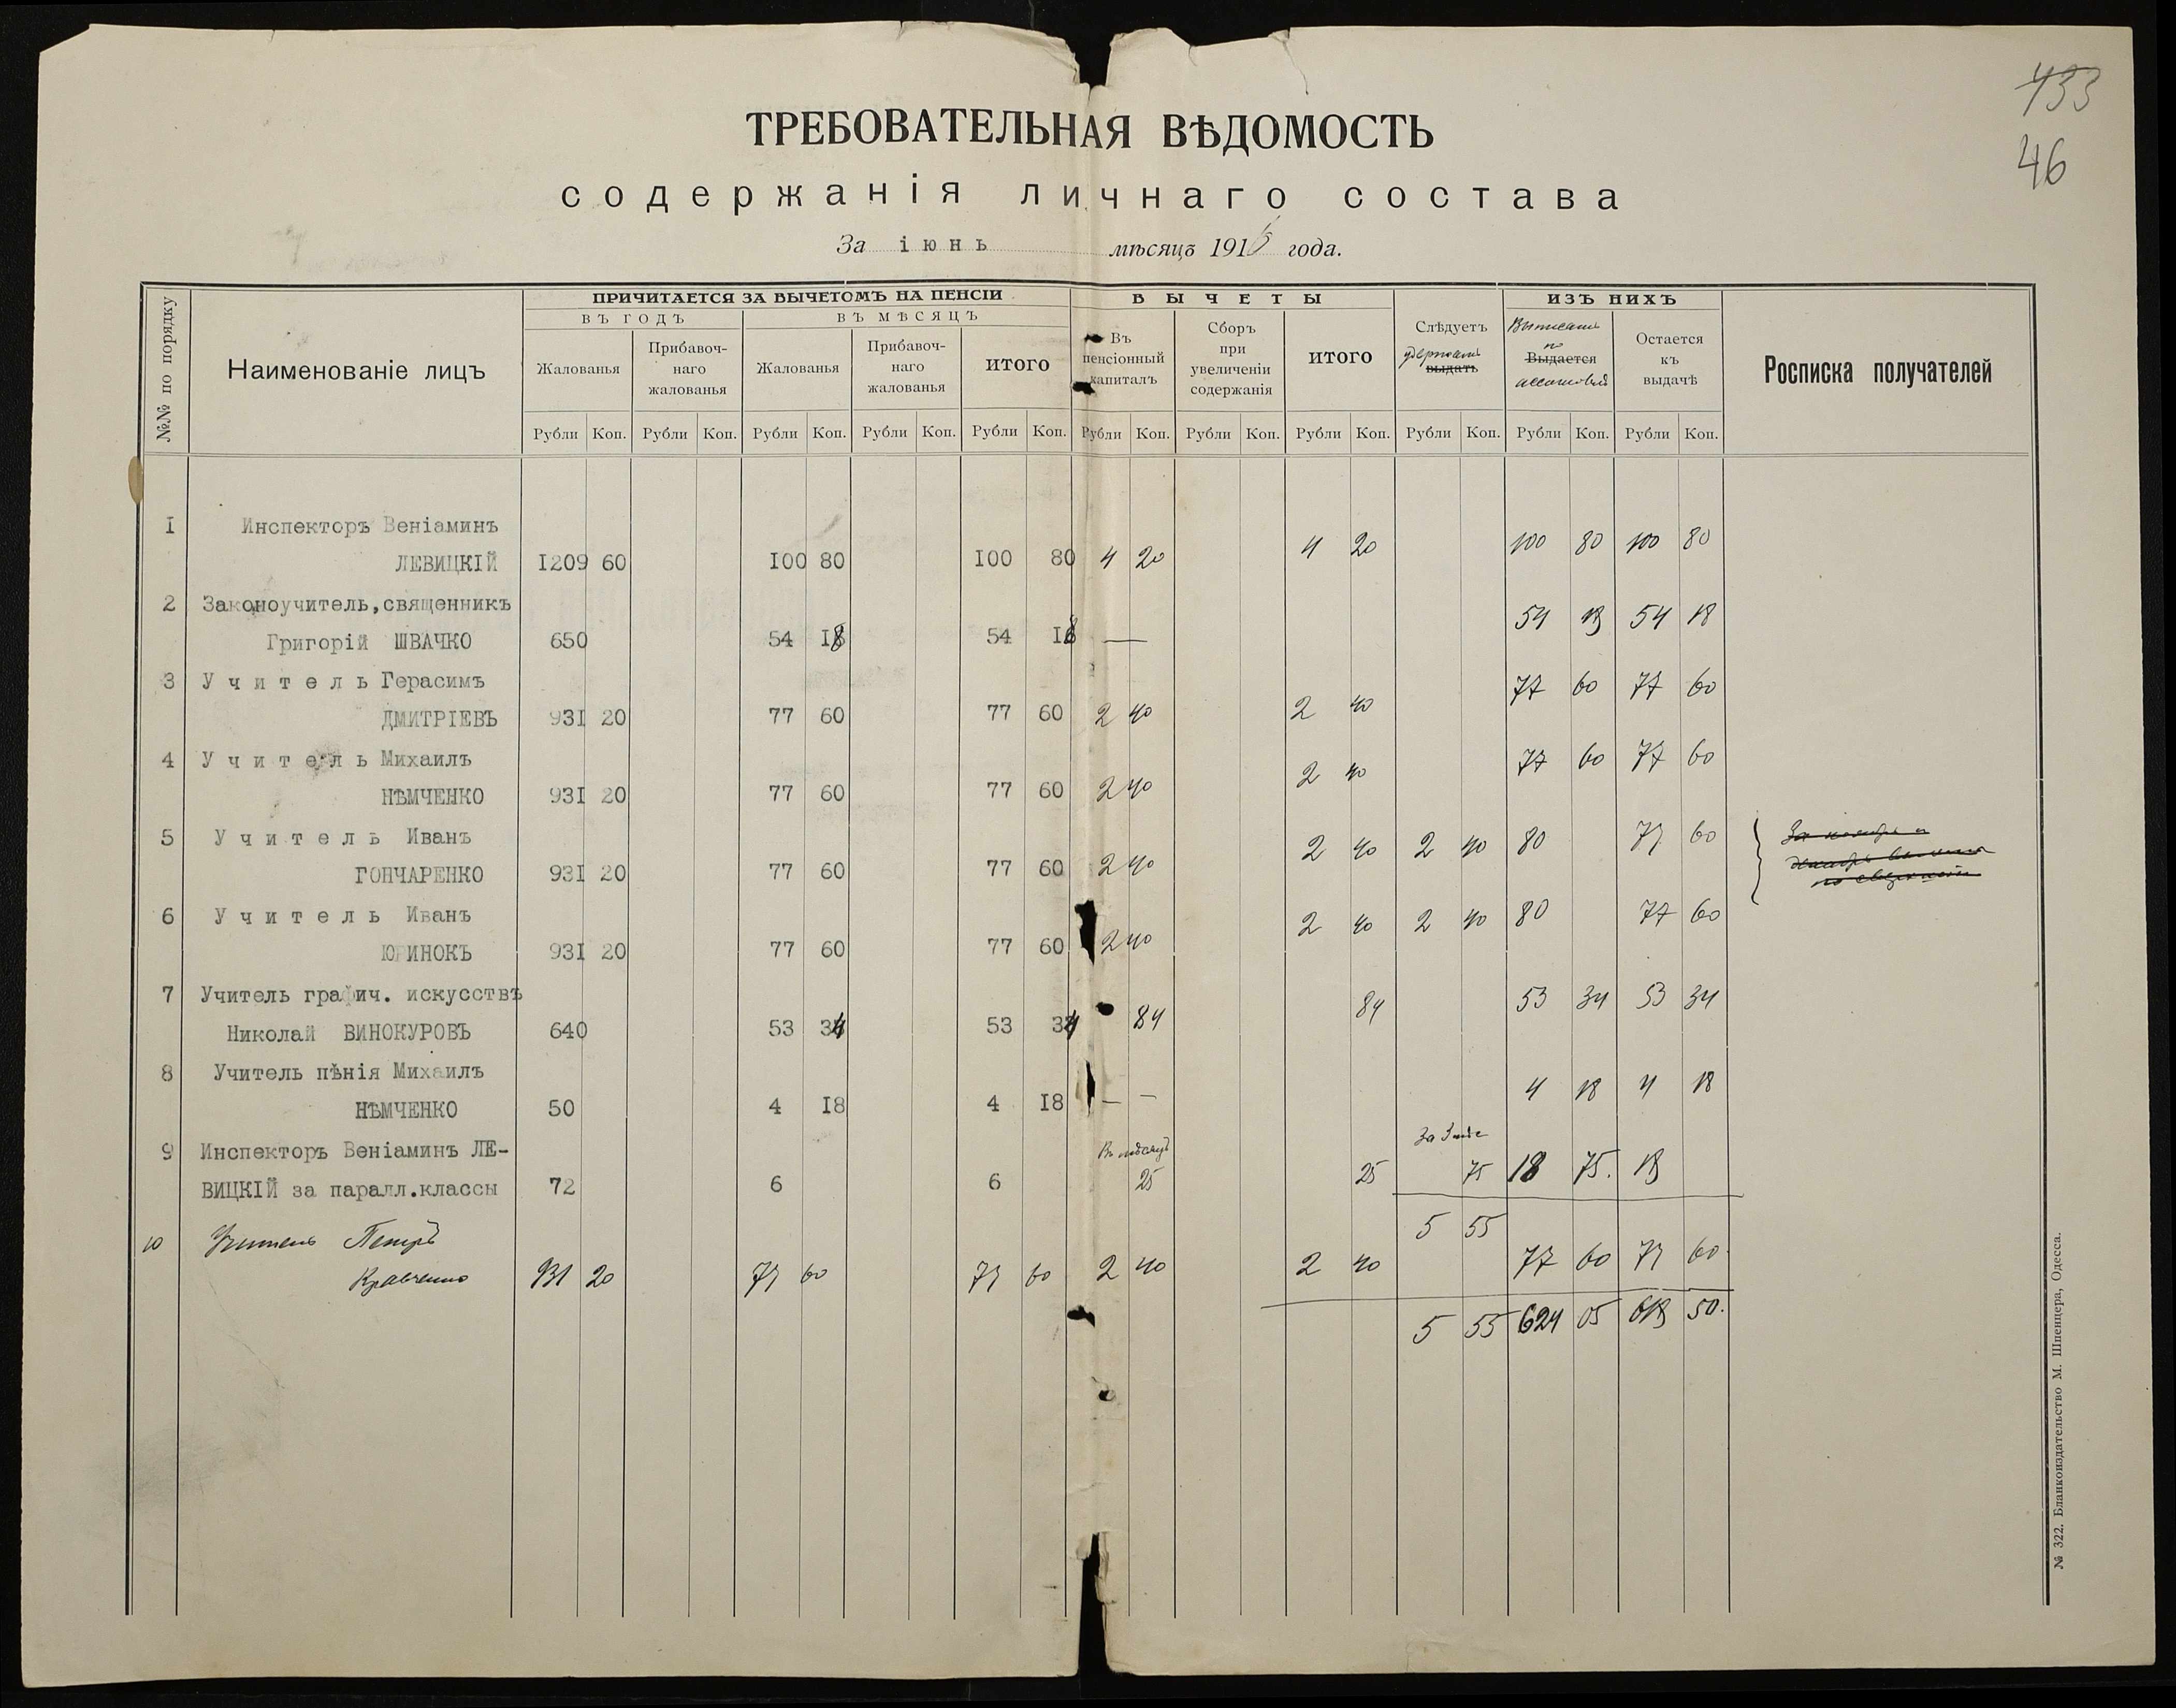 433
46
ТРЕБОВАТЕЛЬНАЯ ВѢДОМОСТЬ
содержанія личнаго состава
За іюнь мѣсяцъ 1916 года.
№№ по порядку
Наименованіе лицъ
ПРИЧИТАЕТСЯ ЗА ВЫЧЕТОМЪ НА ПЕНСІИ
ВЪ ГОДЪ
ВЪ МѢСЯЦЪ
Жалованья
Прибавоч-
наго
жалованья
Жалованья
Прибавоч-
наго
жалованья
ИТОГО
ВЫЧЕТЫ
Въ
пенсіонный
капиталъ
Сборъ
при
увеличеніи
содержанія
ИТОГО
Слѣдуетъ
удержать
выдать
ИЗЪ НИХЪ
Выписано
по
Выдается
ассигновкѣ
Остается
къ
выдачѣ
Росписка получателей
Рубли Коп. Рубли Коп. Рубли Коп. Рубли Коп. Рубли Коп. Рубли Коп. Рубли Коп. Рубли Коп. Рубли Коп. Рубли Коп. Рубли Коп.
I Инспекторъ Веніаминъ
ЛЕВИЦКІЙ I209 60 I00 80 I00 80 4 20 4 20 100 80 100 80
2 Законоучитель,священникъ
Григорій ШВАЧКО 650 54 I8 54 I8 — 54 18 54 18
3 Учитель Герасимъ
ДМИТРІЕВЪ 93I 20 77 60 77 60 2 40 2 40 77 60 77 60
4 Учитель Михаилъ
НѢМЧЕНКО 93I 20 77 60 77 60 2 40 2 40 77 60 77 60
5 Учитель Иванъ
ГОНЧАРЕНКО 93I 20 77 60 77 60 2 40 2 40 2 40 80 77 60
За ноябрь и
декабрь
6 Учитель Иванъ
ЮРИНОКЪ 93I 20 77 60 77 60 2 40 2 40 2 40 80 77 60
7 Учитель графич. искусствъ
Николай ВИНОКУРОВЪ 640 53 34 53 34 84 84 53 34 53 34
8 Учитель пѣнія Михаилъ
НѢМЧЕНКО 50 4 I8 4 I8 — — 4 18 4 18
9 Инспекторъ Веніаминъ ЛЕ-
ВИЦКІЙ за паралл.классы 72 6 6 В мѣсяцъ 25 25 За 3 мѣс 75 18 75. 18
5 55
10 Учитель Петръ
Кравченко 931 20 77 60 77 60 2 40 2 40 77 60 77 60
5 55 624 05 618 50.
№ 322. Бланкоиздательство М. Шпенцера, Одесса.